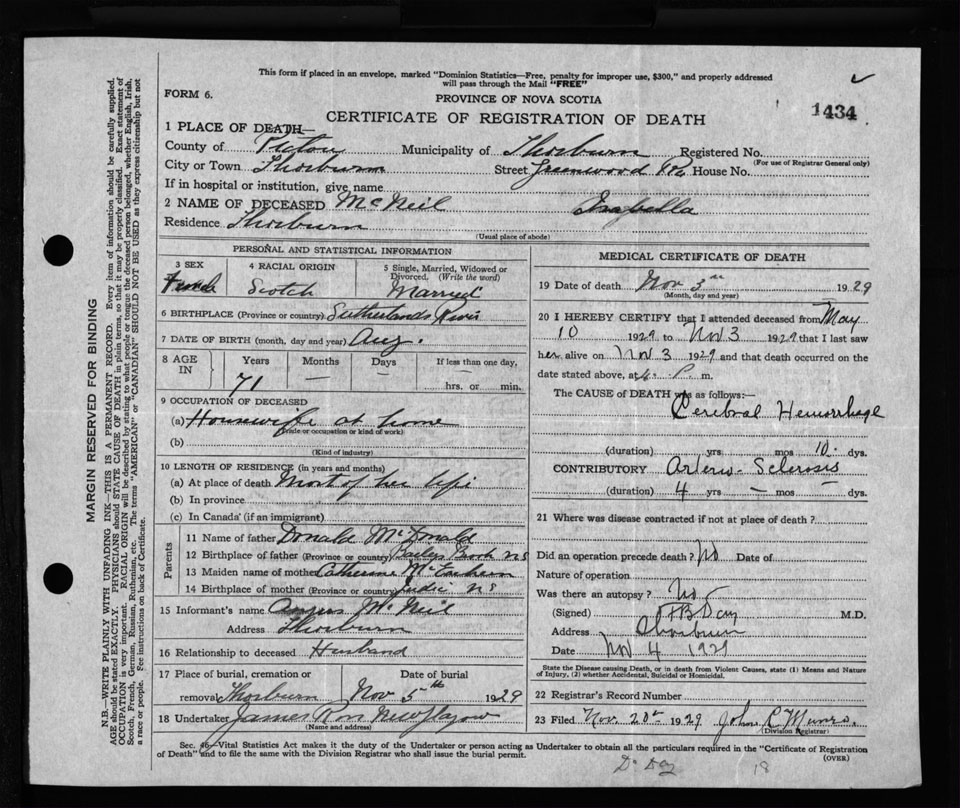 This form if placed in an envelope, marked "Dominion Statistics—Free, penalty for improper use, $300," and properly addressed
will pass through the Mail "FREE"
FORM 6.
PROVINCE OF NOVA SCOTIA
1434
CERTIFICATE OF REGISTRATION OF DEATH
1 PLACE OF DEATH—
County of Pictou Municipality of Thorburn Registered No.
(For use of Registrar General only)
City or Town Thorburn Street Greenwood House No.
If in hospital or institution, give name
2 NAME OF DECEASED McNeil Isabella
Residence Thorburn
(Usual place of abode)
PERSONAL AND STATISTICAL INFORMATION
3 SEX 4 RACIAL ORIGIN 5 Single, Married, Widowed or
Divorced. (Write the word)
Female Scotch Married
6 BIRTHPLACE (Province or country) Sutherlands River
7 DATE OF BIRTH (month, day and year) Aug.
8 AGE IN Years Months Days If less than one day,
71 — — hrs. or min.
9 OCCUPATION OF DECEASED
(a) Housewife at home
(Trade or occupation or kind of work)
(b)
(Kind of industry)
10 LENGTH OF RESIDENCE (in years and months)
(a) At place of death Most of her life
(b) In province
(c) In Canada (if an immigrant)
Parents
11 Name of father Donald McDonald
12 Birthplace of father (Province or country) Baileys Brook NS
13 Maiden name of mother Catherine McEachern
14 Birthplace of mother (Province or country) NS
15 Informant's name Angus McNeil
Address Thorburn
16 Relationship to deceased Husband
17 Place of burial, cremation or Date of burial
removal Thorburn Nov 5th 1929
18 Undertaker James Ross New Glasgow
(Name and address)
MEDICAL CERTIFICATE OF DEATH
19 Date of death Nov 3rd 1929
(Month, day and year)
20 I HEREBY CERTIFY that I attended deceased from May
10 1929 to Nov 3 1929 that I last saw
her alive on Nov 3 1929 and that death occurred on the
date stated above, at 4 P. m.
The CAUSE OF DEATH was as follows:—
Cerebral Hemorrhage
(duration) yrs mos 10 dys.
CONTRIBUTORY Arterio-Sclerosis
(duration) 4 yrs — mos — dys.
21 Where was disease contracted if not at place of death?
Did an operation precede death? No Date of
Nature of operation
Was there an autopsy? No
(Signed) Day M.D.
Address Thorburn
Date Nov 4 1929
State the Disease causing Death, or in death from Violent Causes, state (1) Means and Nature
of Injury, (2) whether Accidental, Suicidal or Homicidal.
22 Registrar's Record Number
23 Filed Nov. 20th 1929 John R Munro
(Division Registrar)
Sec. 46—Vital Statistics Act makes it the duty of the Undertaker or person acting as Undertaker to obtain all the particulars required in the "Certificate of Registration
of Death" and to file the same with the Division Registrar who shall issue the burial permit.
(OVER)
Dr Day 18
MARGIN RESERVED FOR BINDING
N.B.—WRITE PLAINLY WITH UNFADING INK—THIS IS A PERMANENT RECORD. Every item of information should be carefully supplied.
AGE should be stated EXACTLY. PHYSICIANS should STATE CAUSE OF DEATH in plain terms, so that it may be properly classified. Exact statement of
OCCUPATION is very important. RACIAL ORIGIN will be described by stating to what people or tongue the deceased person belonged, whether English, Irish,
Scotch, French, German, Russian, Ruthenian, etc. The terms "AMERICAN" or "CANADIAN" SHOULD NOT BE USED as they express citizenship but not
a race or people. See instructions on back of Certificate.